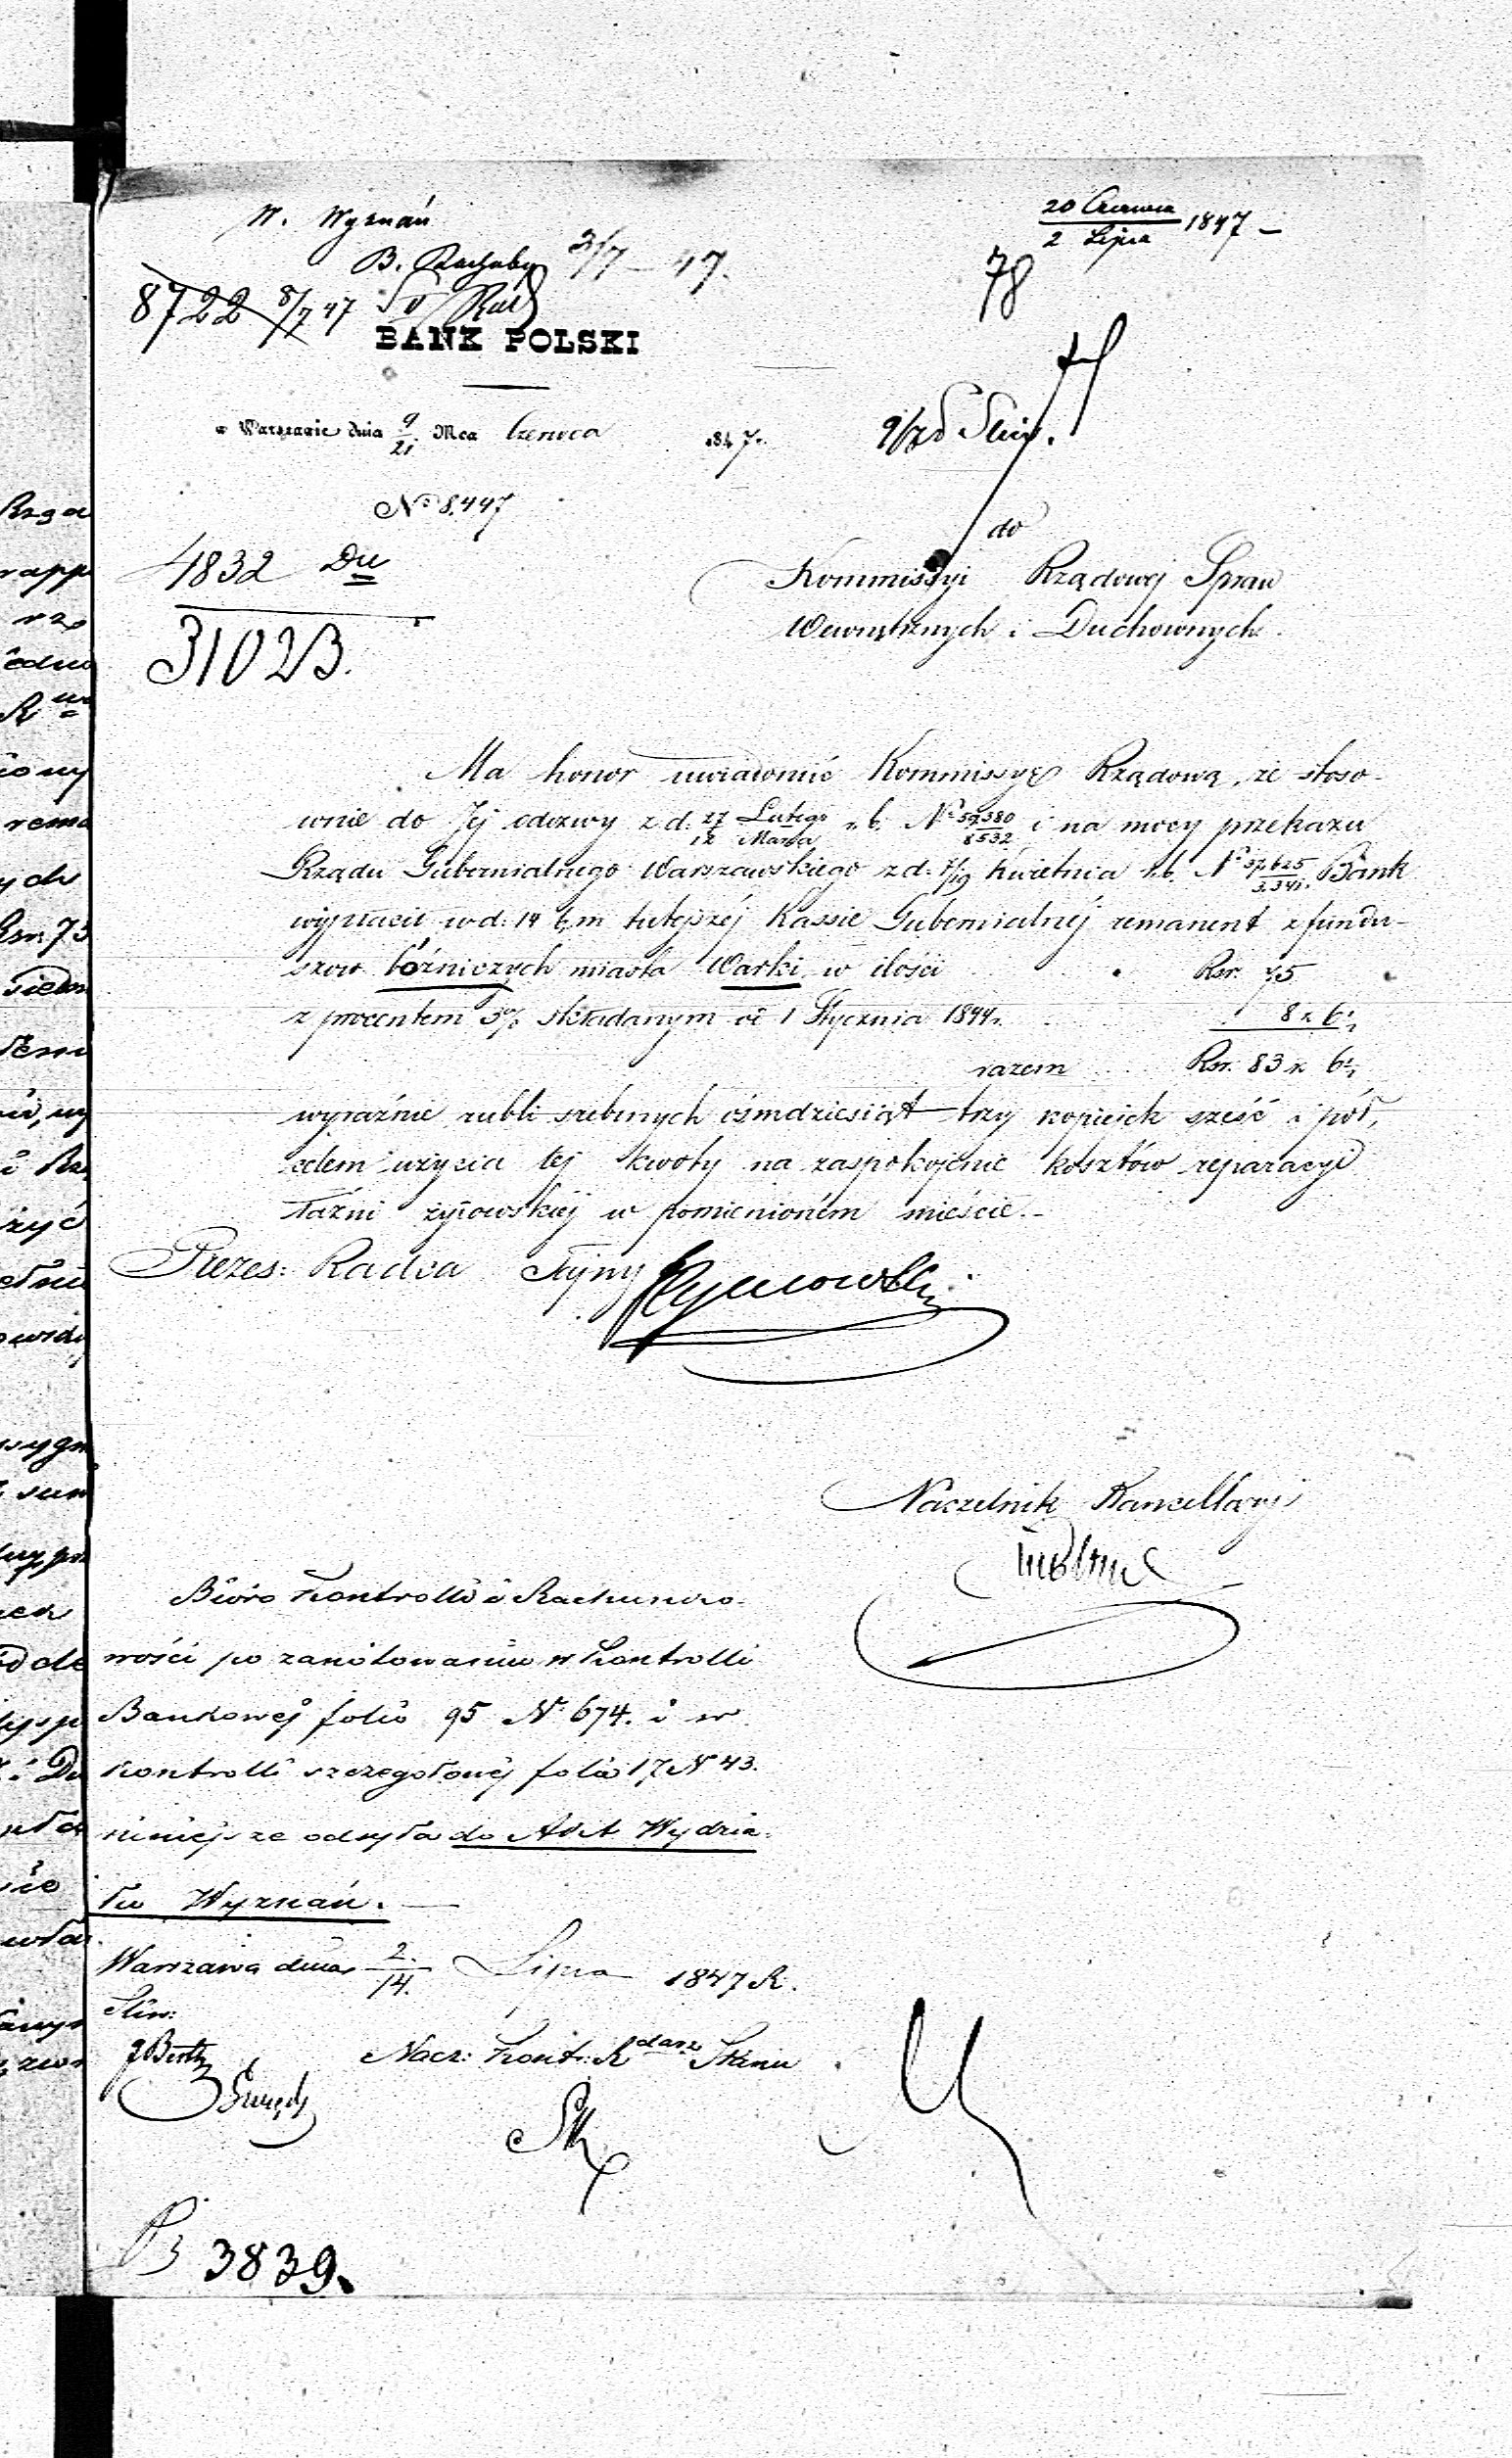 W. Wyznań
20 Czerwca / 2 Lipca 1847 —
B. Rachuby 3/7 — 47.
78
8722 8/7 47
BANK POLSKI
w Warszawie dnia 9/21 Mca Czerwca 1847.
No 8,447
do
4832 Du
Kommissyi Rządowej Spraw
31023.
Wewnętrznych i Duchownych.
Ma honor uwiadomić Kommissyę Rządową, że stoso-
wnie do Jej odezwy z d: 27 Lutego / 12 Marca r. b. No 59,380 / 8532 i na mocy przekazu
Rządu Gubernialnego Warszawskiego z d: 7/19 Kwietnia r.b. No 37,625 / 3,341. Bank
wypłacił w d: 14 b,m tutejszéj Kassie Gubernialnéj remanent z fundu-
szów bóźniczych miasta Warki w ilości Rsr. 75
z procentem 3% składanym od 1 Stycznia 1844r. 8 k 6½
razem Rsr. 83 k 6½
wyraźnie rubli srebrnych ośmdziesiąt trzy kopiejek sześć i pół,
celem użycia tej kwoty na zaspokojenie kosztów reparacyi
łaźni żydowskiéj w pomienioném mieście.-
Prezes: Radca Tajny
Naczelnik Kancellaryi
Biuro Kontrolli i Rachunko-
wości po zanotowaniu w Kontrolli
Bankowéj folio 95 N. 674. i w
kontrolli szczegołowéj folio 17 N 43.
niniejsze odsyła do Akt Wydzia-
łu Wyznań. —
Warszawa dnia 2./14. Lipca 1847 R.
Nacz: Kont: Rdca Stanu
3839.